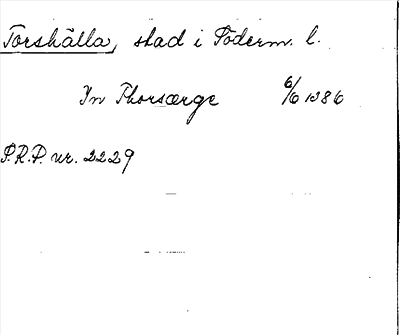 Torshälla, stad i Söderm. l.
In Thorsærge 6/6 1386
S.R.P. nr. 2229